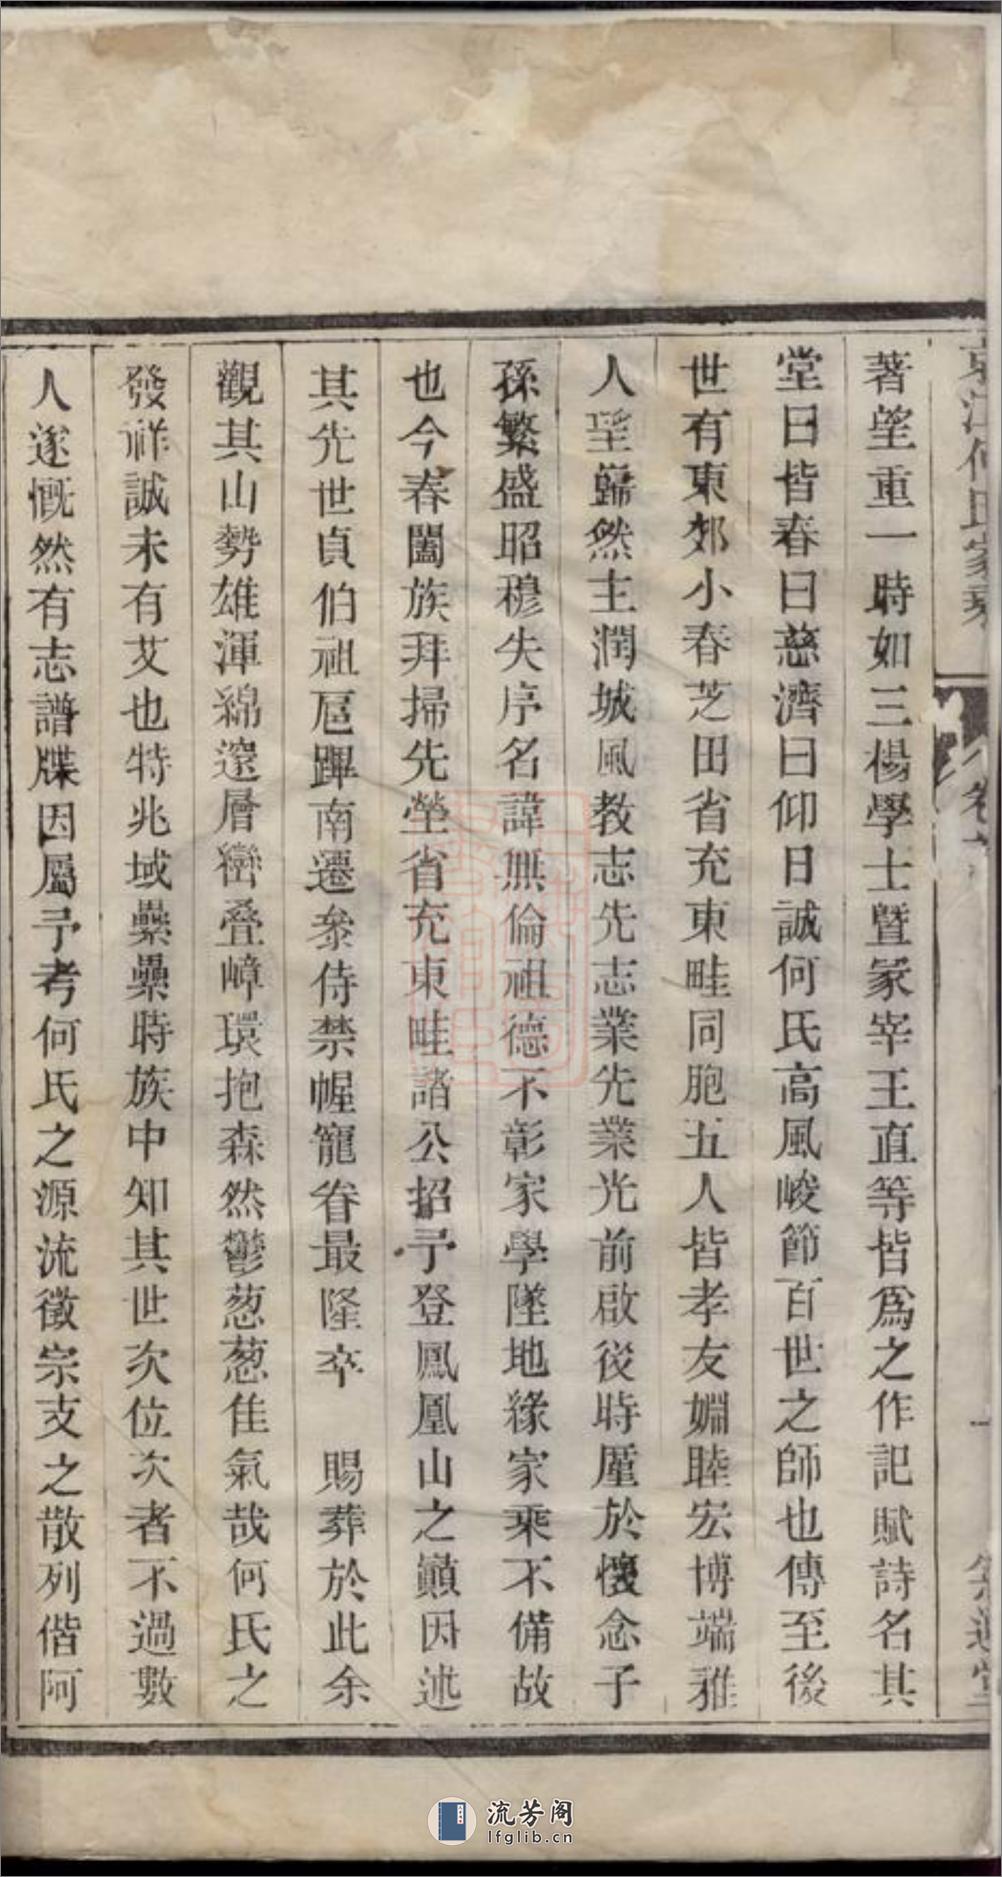 京江何氏家乘
卷
著望重一時如三楊學士暨冢宰王直等皆爲之作記賦詩名其
堂曰皆春曰慈濟曰仰日誠何氏高風峻節百世之師也傳至後
世有東郊小春芝田省充東畦同胞五人皆孝友婣睦宏博端雅
人望歸然主潤城風教志先志業先業光前啟後時厪於懷念子
孫繁盛昭穆失序名諱無倫祖德不彰家學墜地緣家乘不備故
也今春闔族拜掃先塋省充東畦諸公招予登鳳凰山之巔因述
其先世貞伯祖扈蹕南遷叅侍禁幄寵眷最隆卒　賜葬於此余
觀其山勢雄渾綿遼層巒叠嶂環抱森然鬱葱葱佳氣哉何氏之
發祥誠未有艾也特兆域纍纍時族中知其世次位次者不過數
人遂慨然有志譜牒因屬予考何氏之源流徵宗支之散列偕阿
流芳阁
lfglib.cn